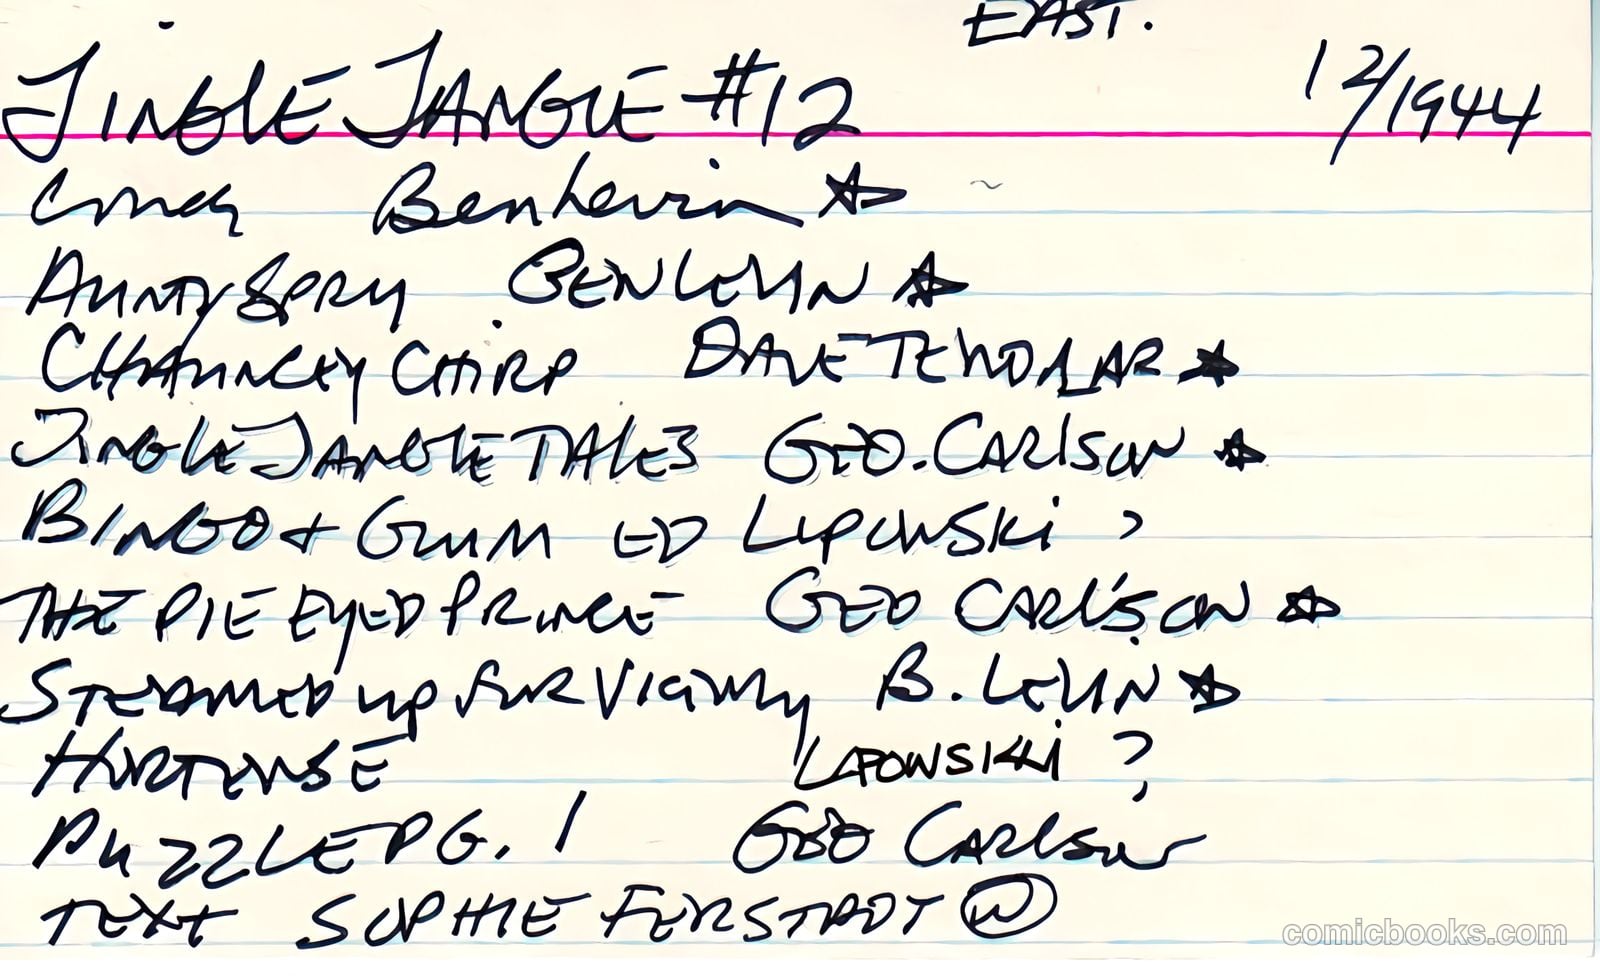 EAST.
JINGLE JANGLE #12 12/1944
Cover Ben Levin ☆
AUNTY SPRY BEN LEVIN ☆
CHAUNCEY CHIRP DAVE TENDLAR ☆
JINGLE JANGLE TALES GEO. CARLSON ☆
BINGO + GLUM ED LIPOWSKI ?
THE PIE EYED PRINCE GEO CARLSON ☆
STEAMED UP FOR VICTORY B. LEVIN ☆
HORTENSE LAPOWSKI ?
PUZZLE PG. 1 GEO CARLSON
TEXT SOPHIE FERSTADT Ⓦ
comicbooks.com